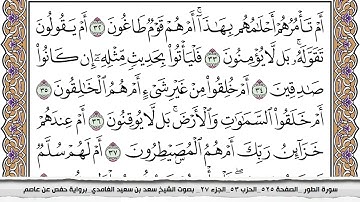 أَمۡ تَأۡمُرُهُمۡ أَحۡلَٰمُهُم بِهَٰذَآۚ أَمۡ هُمۡ قَوۡمٞ طَاغُونَ ٣٢ أَمۡ يَقُولُونَ
تَقَوَّلَهُۥۚ بَل لَّا يُؤۡمِنُونَ ٣٣ فَلۡيَأۡتُواْ بِحَدِيثٖ مِّثۡلِهِۦٓ إِن كَانُواْ
صَٰدِقِينَ ٣٤ أَمۡ خُلِقُواْ مِنۡ غَيۡرِ شَيۡءٍ أَمۡ هُمُ ٱلۡخَٰلِقُونَ ٣٥
أَمۡ خَلَقُواْ ٱلسَّمَٰوَٰتِ وَٱلۡأَرۡضَۚ بَل لَّا يُوقِنُونَ ٣٦ أَمۡ عِندَهُمۡ
خَزَآئِنُ رَبِّكَ أَمۡ هُمُ ٱلۡمُصَۜيۡطِرُونَ ٣٧ أَمۡ لَهُمۡ سُلَّمٞ
سورة الطور_الصفحة ٥٢٥_الحزب ٥٣_الجزء ٢٧_ بصوت الشيخ سعد بن سعيد الغامدي_ برواية حفص عن عاصم